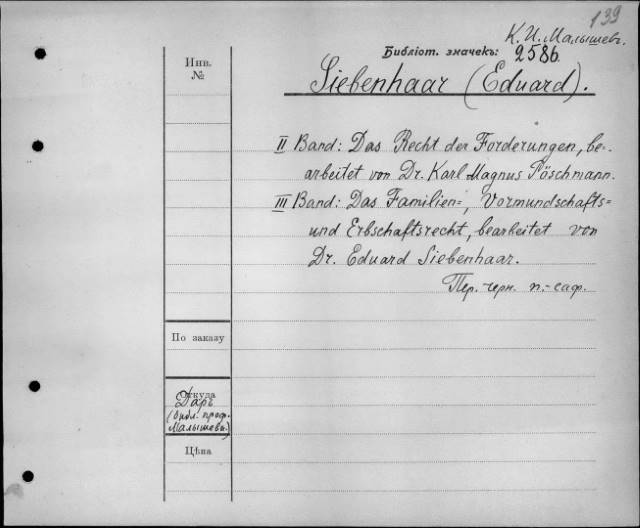 139
К. И. Малышевъ.
Библіот. значекъ: 2586.
Инв.
№
Siebenhaar (Eduard).
II Band: Das Recht der Forderungen, be-
arbeitet von Dr. Karl Magnus Pöschmann.
III Band: Das Familien-, Vormundschafts-
und Erbschaftsrecht, bearbeitet von
Dr. Eduard Siebenhaar.
Пер. черн. п.-саф.
По заказу
Откуда
Даръ
(библ. проф.
Малышева.)
Цѣна